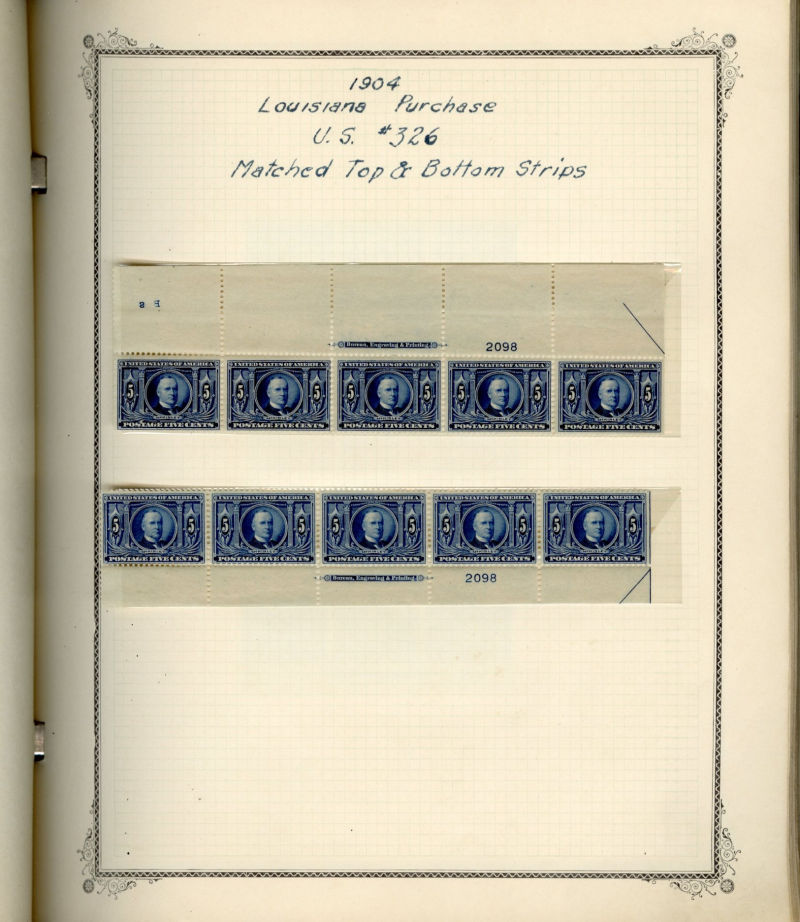 1904
Louisiana Purchase
U.S. #326
Matched Top & Bottom Strips
Bureau, Engraving & Printing.
2098
UNITED STATES OF AMERICA UNITED STATES OF AMERICA UNITED STATES OF AMERICA UNITED STATES OF AMERICA UNITED STATES OF AMERICA
5 5 5 5 5 5 5 5 5 5
POSTAGE FIVE CENTS POSTAGE FIVE CENTS POSTAGE FIVE CENTS POSTAGE FIVE CENTS POSTAGE FIVE CENTS
UNITED STATES OF AMERICA UNITED STATES OF AMERICA UNITED STATES OF AMERICA UNITED STATES OF AMERICA UNITED STATES OF AMERICA
5 5 5 5 5 5 5 5 5 5
POSTAGE FIVE CENTS POSTAGE FIVE CENTS POSTAGE FIVE CENTS POSTAGE FIVE CENTS POSTAGE FIVE CENTS
Bureau, Engraving & Printing.
2098